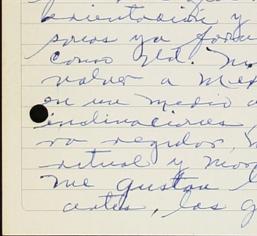 orientación y
seres ya form
como Ud. No
volver a Mex
en un medio a
inclinaciones,
ro regidos,
ritual y mor
me gustan l
antes, las g